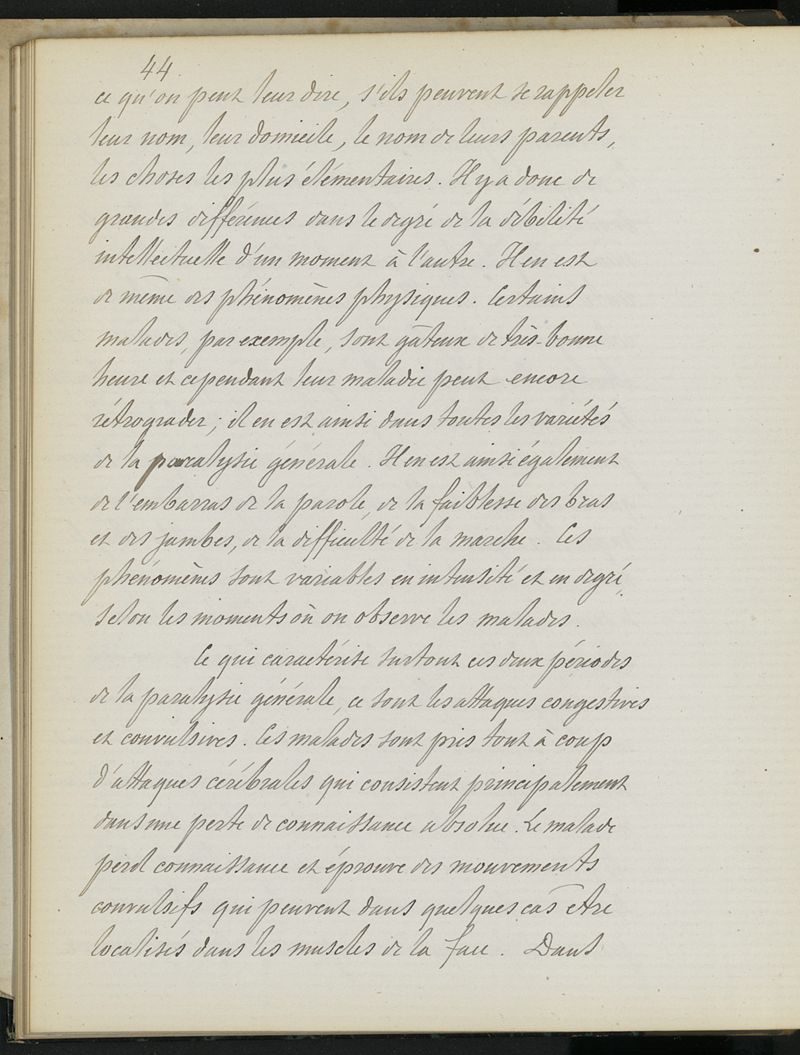 44
ce qu'on peut leur dire, s'ils peuvent se rappeler
leur nom, leur domicile, le nom de leurs parents,
les choses les plus élémentaires. Il y a donc de
grandes différences dans le degré de la débilité
intellectuelle d'un moment à l'autre. Il en est
de même des phénomènes physiques. Certains
malades, par exemple, sont gâteux de très-bonne
heure et cependant leur maladie peut encore
rétrograder ; il en est ainsi dans toutes les variétés
de la paralysie générale. Il en est ainsi également
de l'embarras de la parole, de la faiblesse des bras
et des jambes, de la difficulté de la marche. Ces
phénomènes sont variables en intensité et en degré,
selon les moments où on observe les malades.
Ce qui caractérise surtout ces deux périodes
de la paralysie générale, ce sont les attaques congestives
et convulsives. Ces malades sont pris tout à coup
d'attaques cérébrales qui consistent principalement
dans une perte de connaissance absolue. Le malade
perd connaissance et éprouve des mouvements
convulsifs qui peuvent dans quelques cas être
localisés dans les muscles de la face. Dans